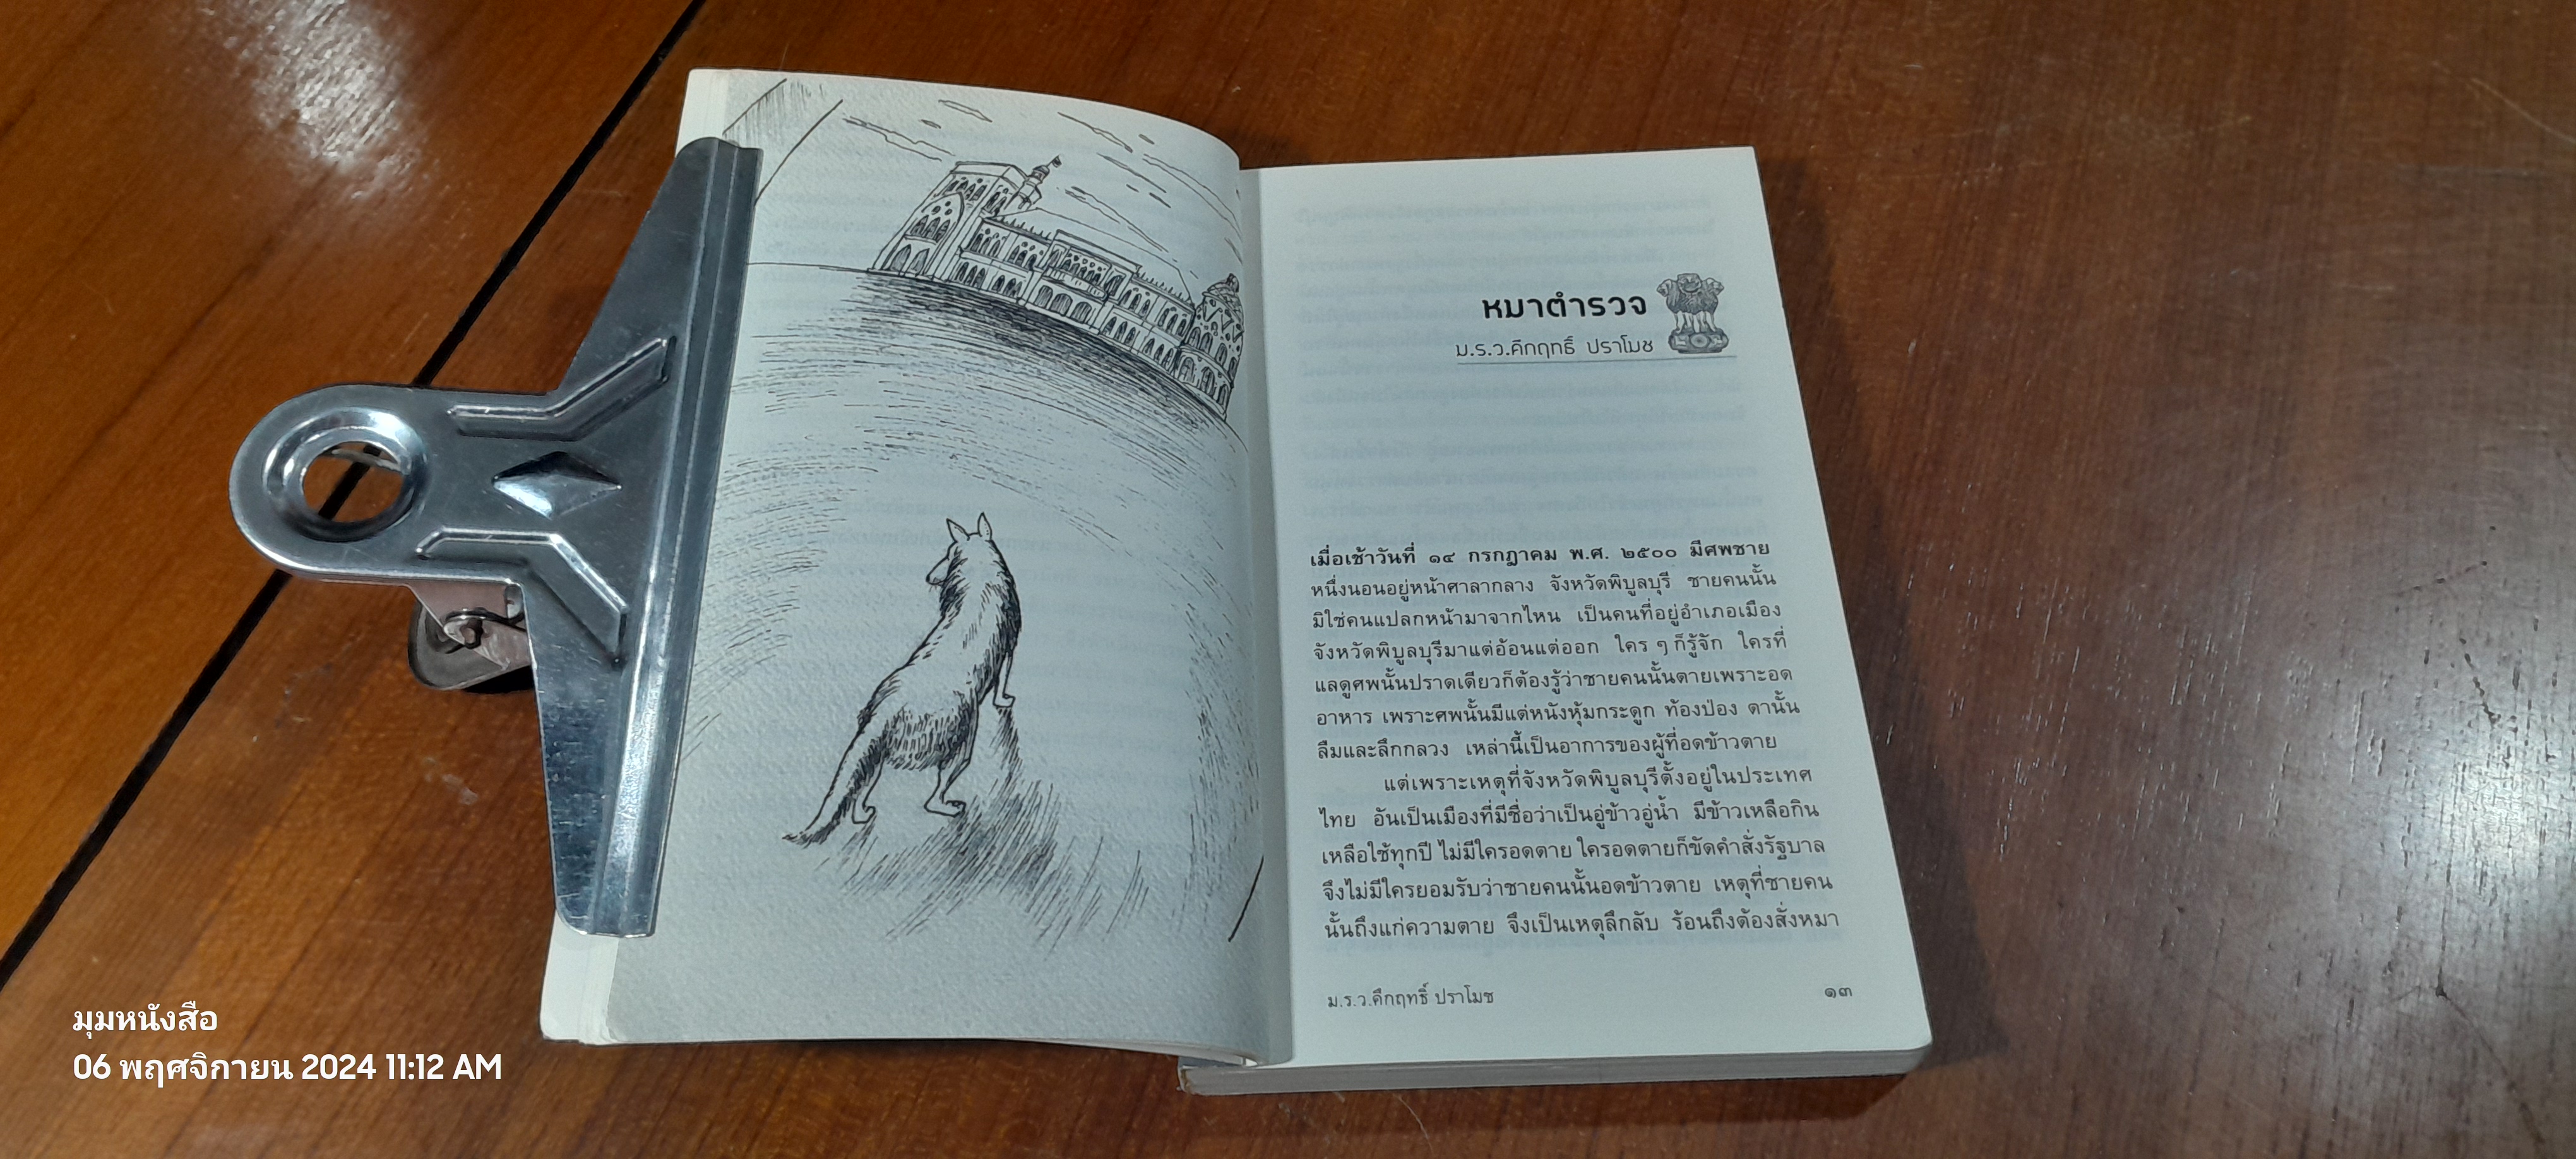 หมาตำรวจ
ม.ร.ว.คึกฤทธิ์ ปราโมช
เมื่อเช้าวันที่ ๑๔ กรกฎาคม พ.ศ. ๒๕๐๐ มีศพชาย
หนึ่งนอนอยู่หน้าศาลากลาง จังหวัดพิบูลบุรี ชายคนนั้น
มิใช่คนแปลกหน้ามาจากไหน เป็นคนที่อยู่อำเภอเมือง
จังหวัดพิบูลบุรีมาแต่อ้อนแต่ออก ใคร ๆ ก็รู้จัก ใครที่
แลดูศพนั้นปราดเดียวก็ต้องรู้ว่าชายคนนั้นตายเพราะอด
อาหาร เพราะศพนั้นมีแต่หนังหุ้มกระดูก ท้องป่อง ตานั้น
ลืมและลึกกลวง เหล่านี้เป็นอาการของผู้ที่อดข้าวตาย
แต่เพราะเหตุที่จังหวัดพิบูลบุรีตั้งอยู่ในประเทศ
ไทย อันเป็นเมืองที่มีชื่อว่าเป็นอู่ข้าวอู่น้ำ มีข้าวเหลือกิน
เหลือใช้ทุกปี ไม่มีใครอดตาย ใครอดตายก็ขัดคำสั่งรัฐบาล
จึงไม่มีใครยอมรับว่าชายคนนั้นอดข้าวตาย เหตุที่ชายคน
นั้นถึงแก่ความตาย จึงเป็นเหตุลึกลับ ร้อนถึงต้องสั่งหมา
ม.ร.ว.คึกฤทธิ์ ปราโมช
๑๓
มุมหนังสือ
06 พฤศจิกายน 2024 11:12 AM